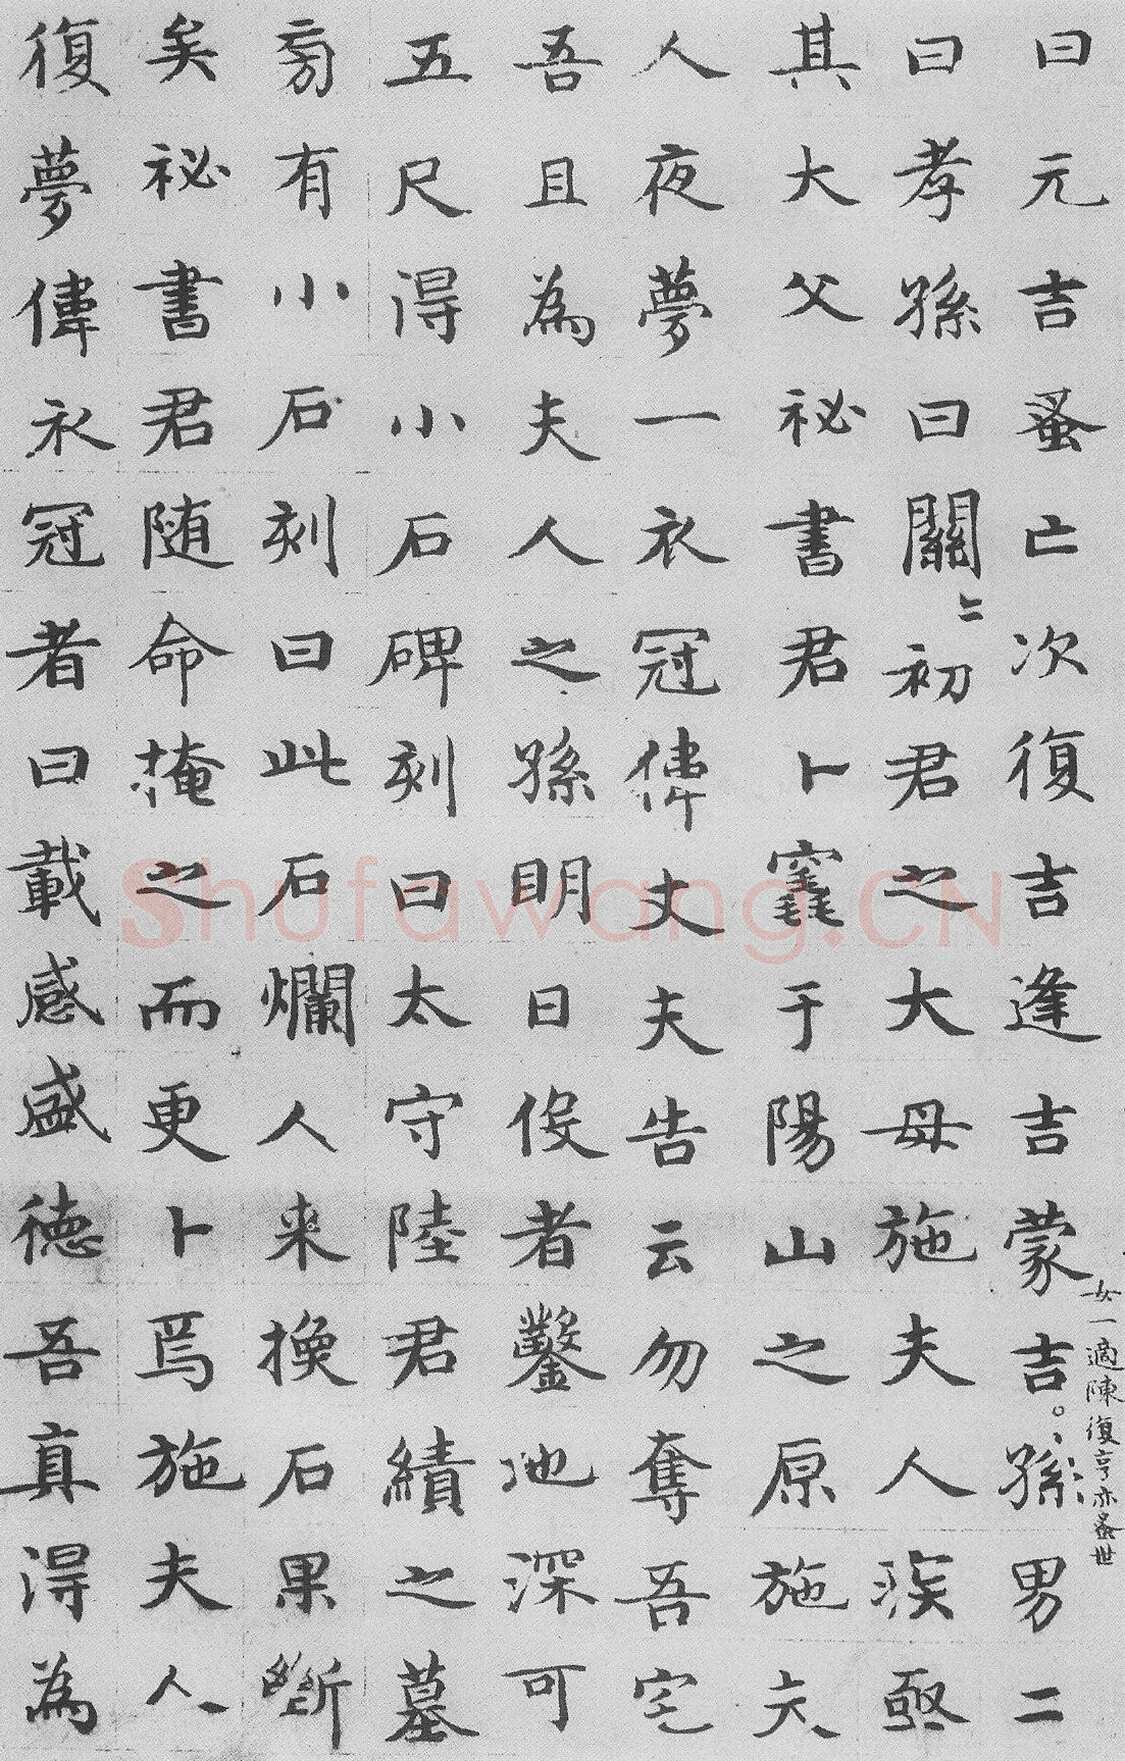 曰元吉蚤亡次復吉逢吉蒙吉孫男二
女一適陳復亨亦蚤世
曰孝孫曰關關初君之大母施夫人疾亟
其大父祕書君卜竁于陽山之原施夫
人夜夢一衣冠偉丈夫告云勿奪吾宅
吾且為夫人之孫明日役者鑿地深可
五尺得小石碑刻曰太守陸君績之墓
旁有小石刻曰此石爛人来換石果斷
矣祕書君随命掩之而更卜焉施夫人
復夢偉衣冠者曰載感盛德吾真得為
Shufawang.CN